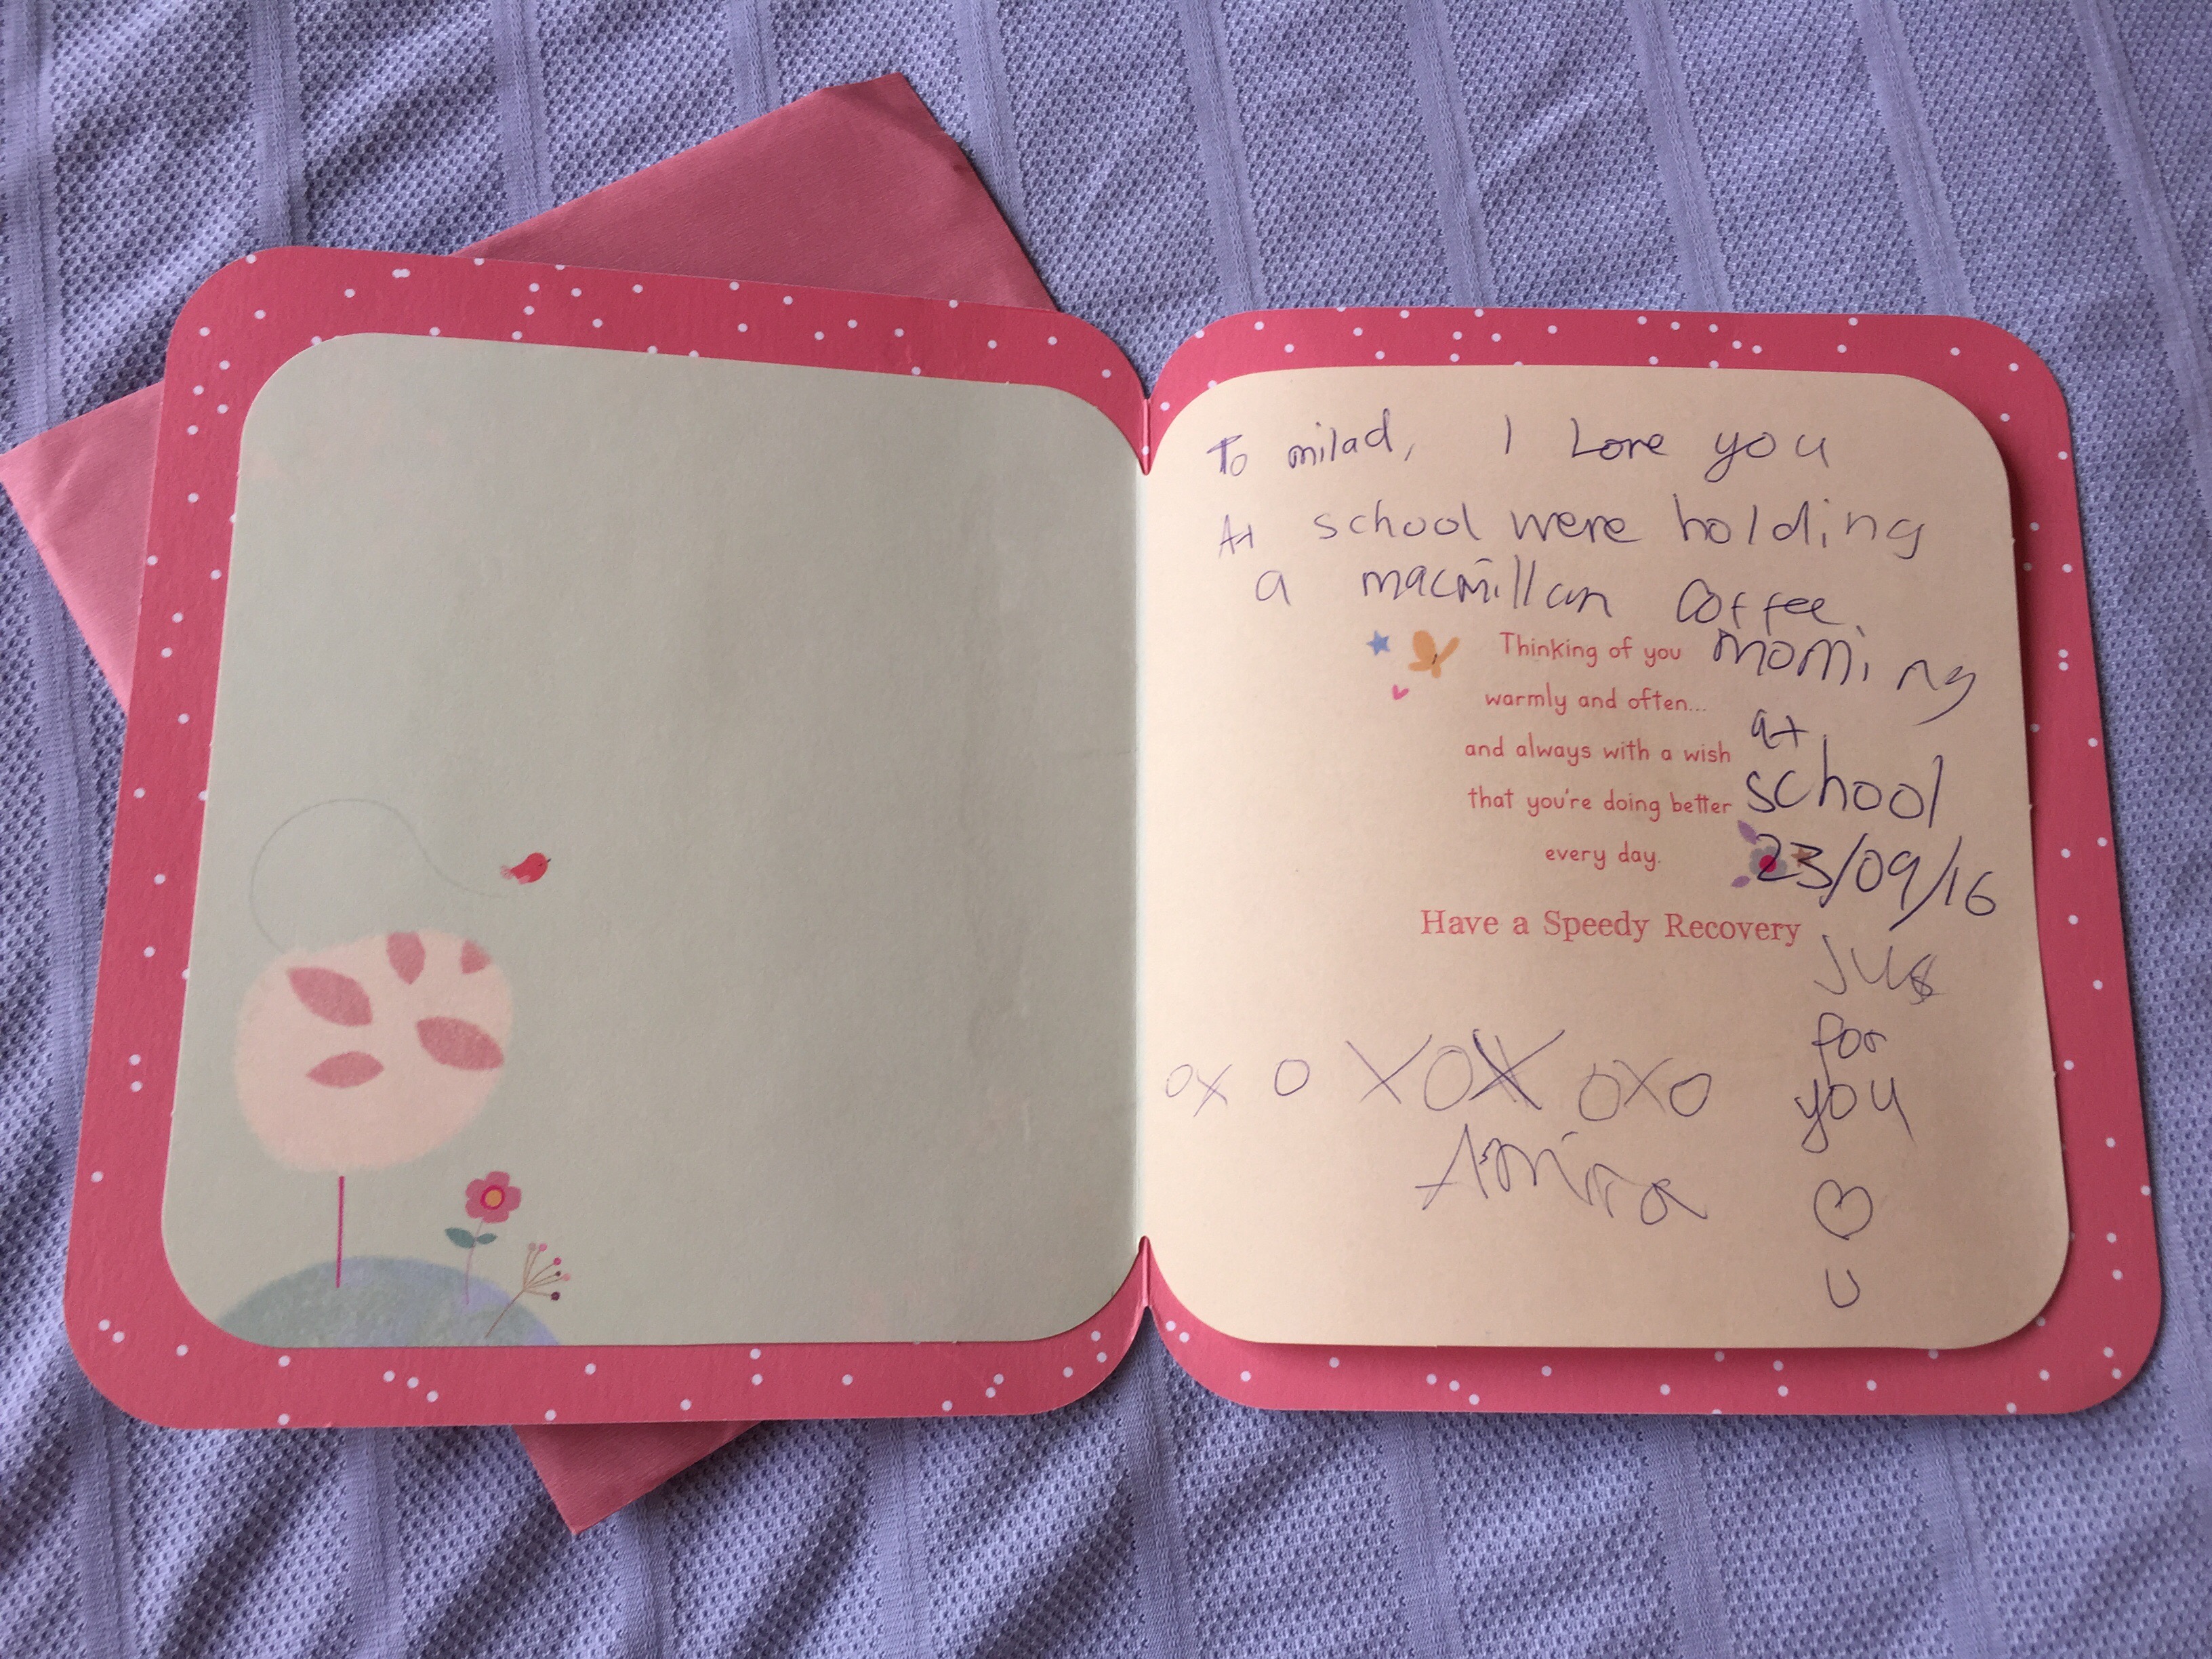 To milad, I Love you
At school were holding
a macmillan Coffee
morning
at
school
23/09/16
Jus
for
you
U
Thinking of you
warmly and often...
and always with a wish
that you're doing better
every day.
Have a Speedy Recovery
OX O XOX OXO
Amira